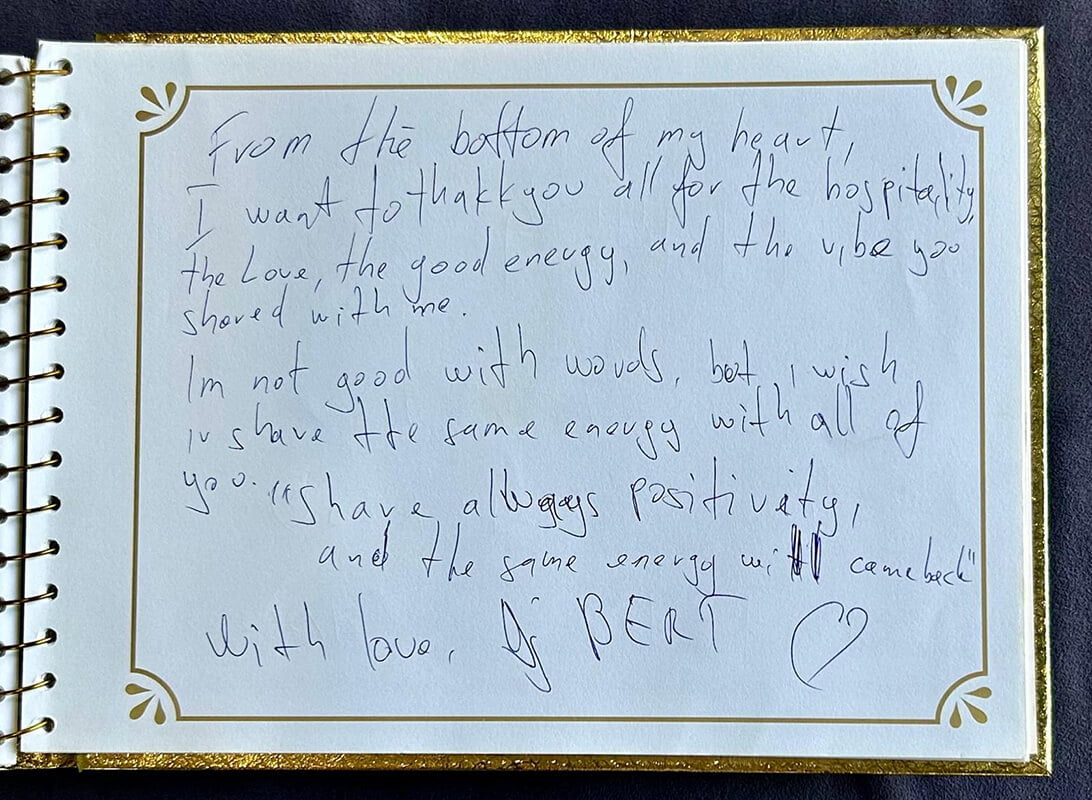 From the bottom of my heart,
I want to thakk you all for the hospitality,
the Love, the good energy, and the vibe you
shared with me.
Im not good with words, but I wish
share the same energy with all of
you. "share always positivity,
and the same energy will came back"
With love, Dj BERT